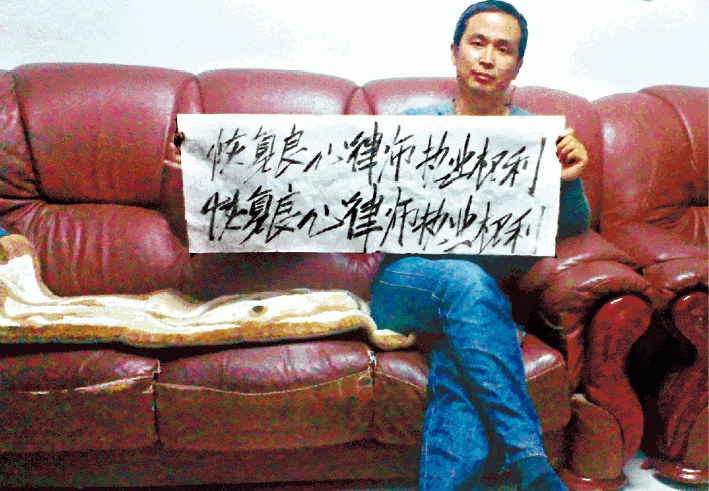 恢复良心律师执业权利
恢复良心律师执业权利